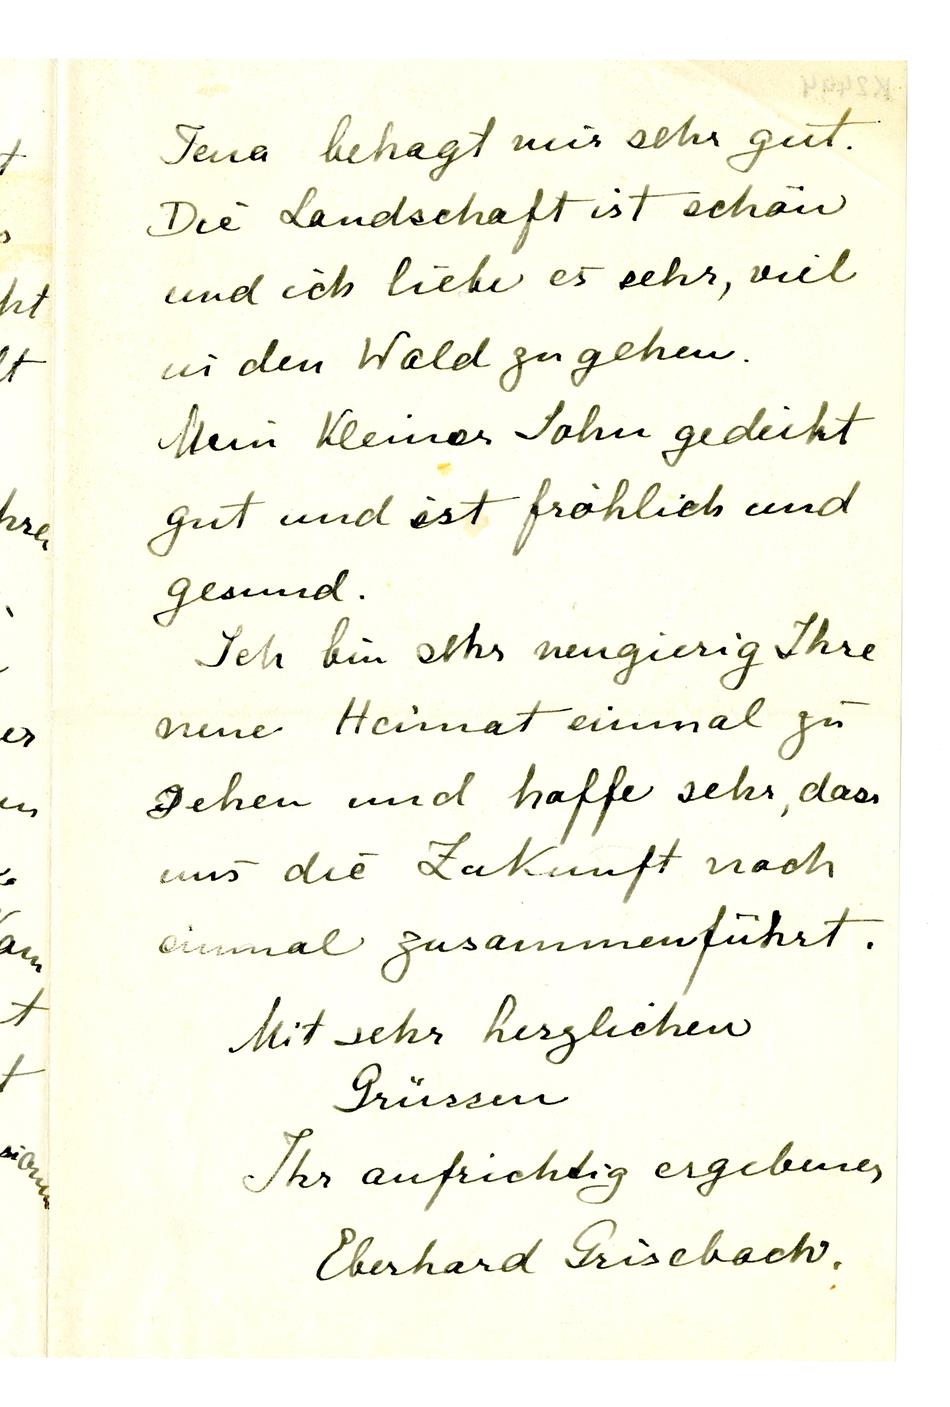 Jena behagt mir sehr gut.
Die Landschaft ist schön
und ich liebe es sehr, viel
in den Wald zu gehen.
Mein Kleiner Sohn gedeiht
gut und ist fröhlich und
gesund.
Ich bin sehr neugierig Ihre
neue Heimat einmal zu
sehen und hoffe sehr, dass
uns die Zukunft noch
einmal zusammenführt.
Mit sehr herzlichen
Grüssen
Ihr aufrichtig ergebener
Eberhard Grisebach.
K2494